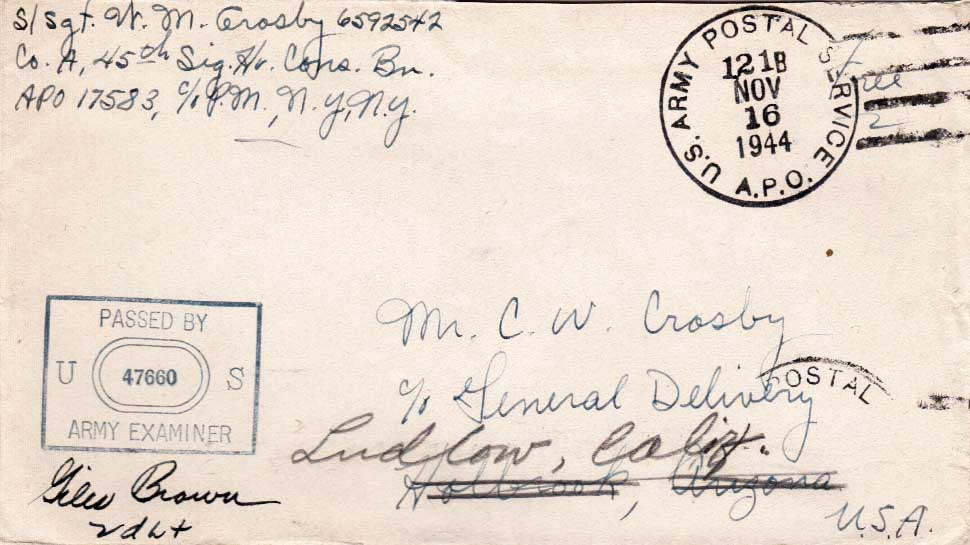 S/Sgt. W. M. Crosby 6592542
Co. A, 45th Sig. Hv. Cons. Bn.
APO 17583, c/o P.M., N.Y., N.Y.
U.S. ARMY POSTAL SERVICE
1218
NOV
16
1944
A.P.O.
Free
PASSED BY
U 47660 S
ARMY EXAMINER
Giles Brown
2d Lt
Mr. C. W. Crosby
c/o General Delivery
POSTAL
Ludlow, Calif.
Holbrook, Arizona
U.S.A.